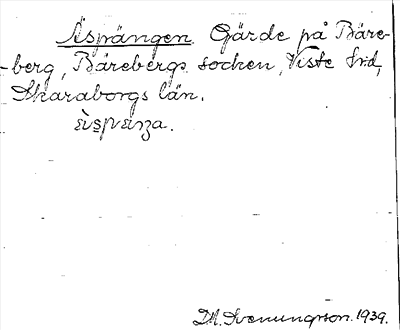 Äspängen. Gärde på Bäre-
-berg, Bärebergs socken, Viste hrd,
Skaraborgs län.
D.A. Svenungsson. 1939.